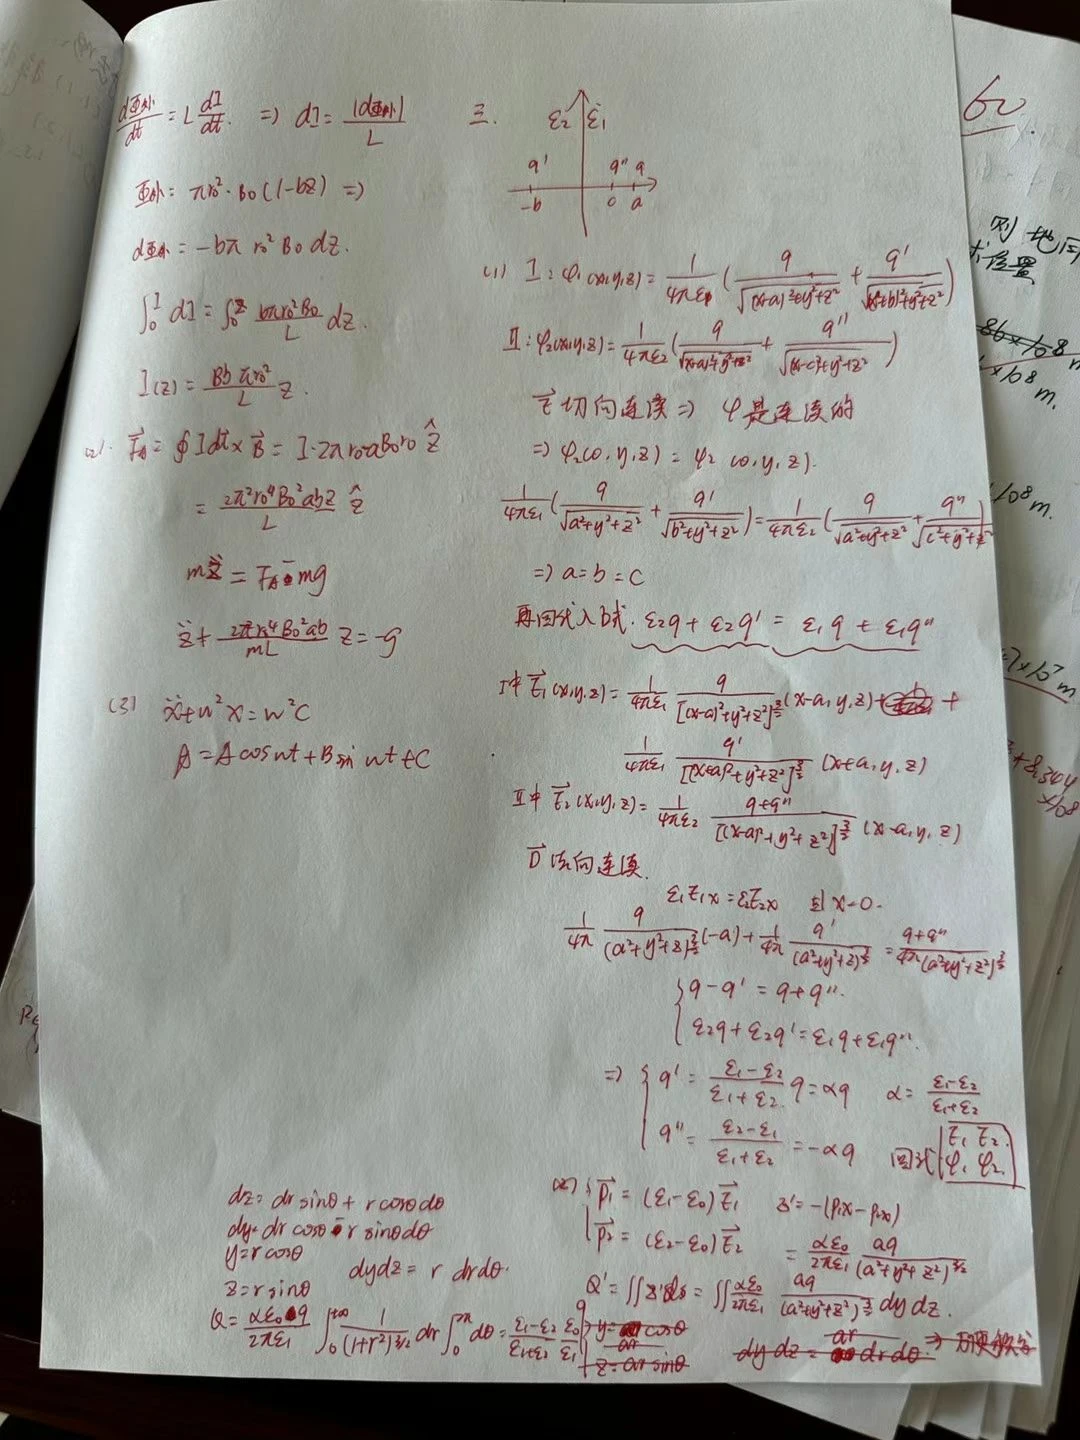 dΦ外/dt = L dI/dt. ⇒ dI = |dΦ外|/L
Φ外 = πr₀²·B₀(1-bz) ⇒
dΦ外 = -bπ r₀² B₀ dz.
∫₀ᴵ dI = ∫₀ᶻ bπr₀²B₀/L dz.
I(z) = Bb πr₀²/L z.
(2). F⃗A = ∮ Idl⃗ × B⃗ = I·2πr₀·aB₀r₀ ẑ
= 2π²r₀⁴B₀²abz/L ẑ
mz̈ = FA - mg
z̈ + 2π²r₀⁴B₀²ab/mL z = -g
(3) ẍ+w²x=w²C
A = A cos wt + B sin wt + C
三.
ε₂ ε₁
q' q'' q
-b c a
(1) I: φ₁(x,y,z) = 1/4πε₁ (q/√((x-a)²+y²+z²) + q'/√((x+b)²+y²+z²))
II: φ₂(x,y,z) = 1/4πε₂ (q/√((x-a)²+y²+z²) + q''/√((x-c)²+y²+z²))
E⃗ 切向连续 ⇒ φ是连续的
⇒ φ₁(0,y,z) = φ₂(0,y,z).
1/4πε₁ (q/√(a²+y²+z²) + q'/√(b²+y²+z²)) = 1/4πε₂ (q/√(a²+y²+z²) + q''/√(c²+y²+z²))
⇒ a=b=c
再回代入 ε₂q + ε₂q' = ε₁q + ε₁q''
I中 E⃗₁(x,y,z) = 1/4πε₁ q/[(x-a)²+y²+z²]^(3/2) (x-a,y,z) +
1/4πε₁ q'/[(x+a)²+y²+z²]^(3/2) (x+a,y,z)
II中 E⃗₂(x,y,z) = 1/4πε₂ q+q''/[(x-a)²+y²+z²]^(3/2) (x-a,y,z)
D⃗ 法向连续.
ε₁E₁x = ε₂E₂x x=0.
1/4π q/(a²+y²+z)^(3/2) (-a) + 1/4π q'/(a²+y²+z)^(3/2) = q+q''/4π(a²+y²+z²)^(3/2)
{ q-q' = q+q''.
ε₂q+ε₂q' = ε₁q+ε₁q''.
⇒ { q' = ε₁-ε₂/ε₁+ε₂ q = αq α = ε₁-ε₂/ε₁+ε₂
q'' = ε₂-ε₁/ε₁+ε₂ = -αq 回代 E₁ E₂. φ₁ φ₂.
(2) { P⃗₁ = (ε₁-ε₀)E⃗₁ = -(P₁x-P₂x)
P⃗₂ = (ε₂-ε₀)E⃗₂ = αε₀/2πε₁ aq/(a²+y²+z²)^(3/2)
Q' = ∬ = ∬ αε₀/2πε₁ aq/(a²+y²+z²)^(3/2) dy dz.
dz = dr sinθ + r cosθ dθ
dy = dr cosθ - r sinθ dθ
y = r cosθ
z = r sinθ dydz = r drdθ.
Q = αε₀q/2πε₁ ∫₀^(+∞) 1/(1+r²)^(3/2) dr ∫₀^(2π) dθ = ε₁-ε₂/ε₁+ε₂ ε₀/ε₁ q
y = cosθ
z = ar sinθ
dy dz = ar drdθ. ⇒
60
则 地
位置
86×10⁸
×10⁸ m.
10⁸ m.
7×10⁷ m
+8.344
×10⁸